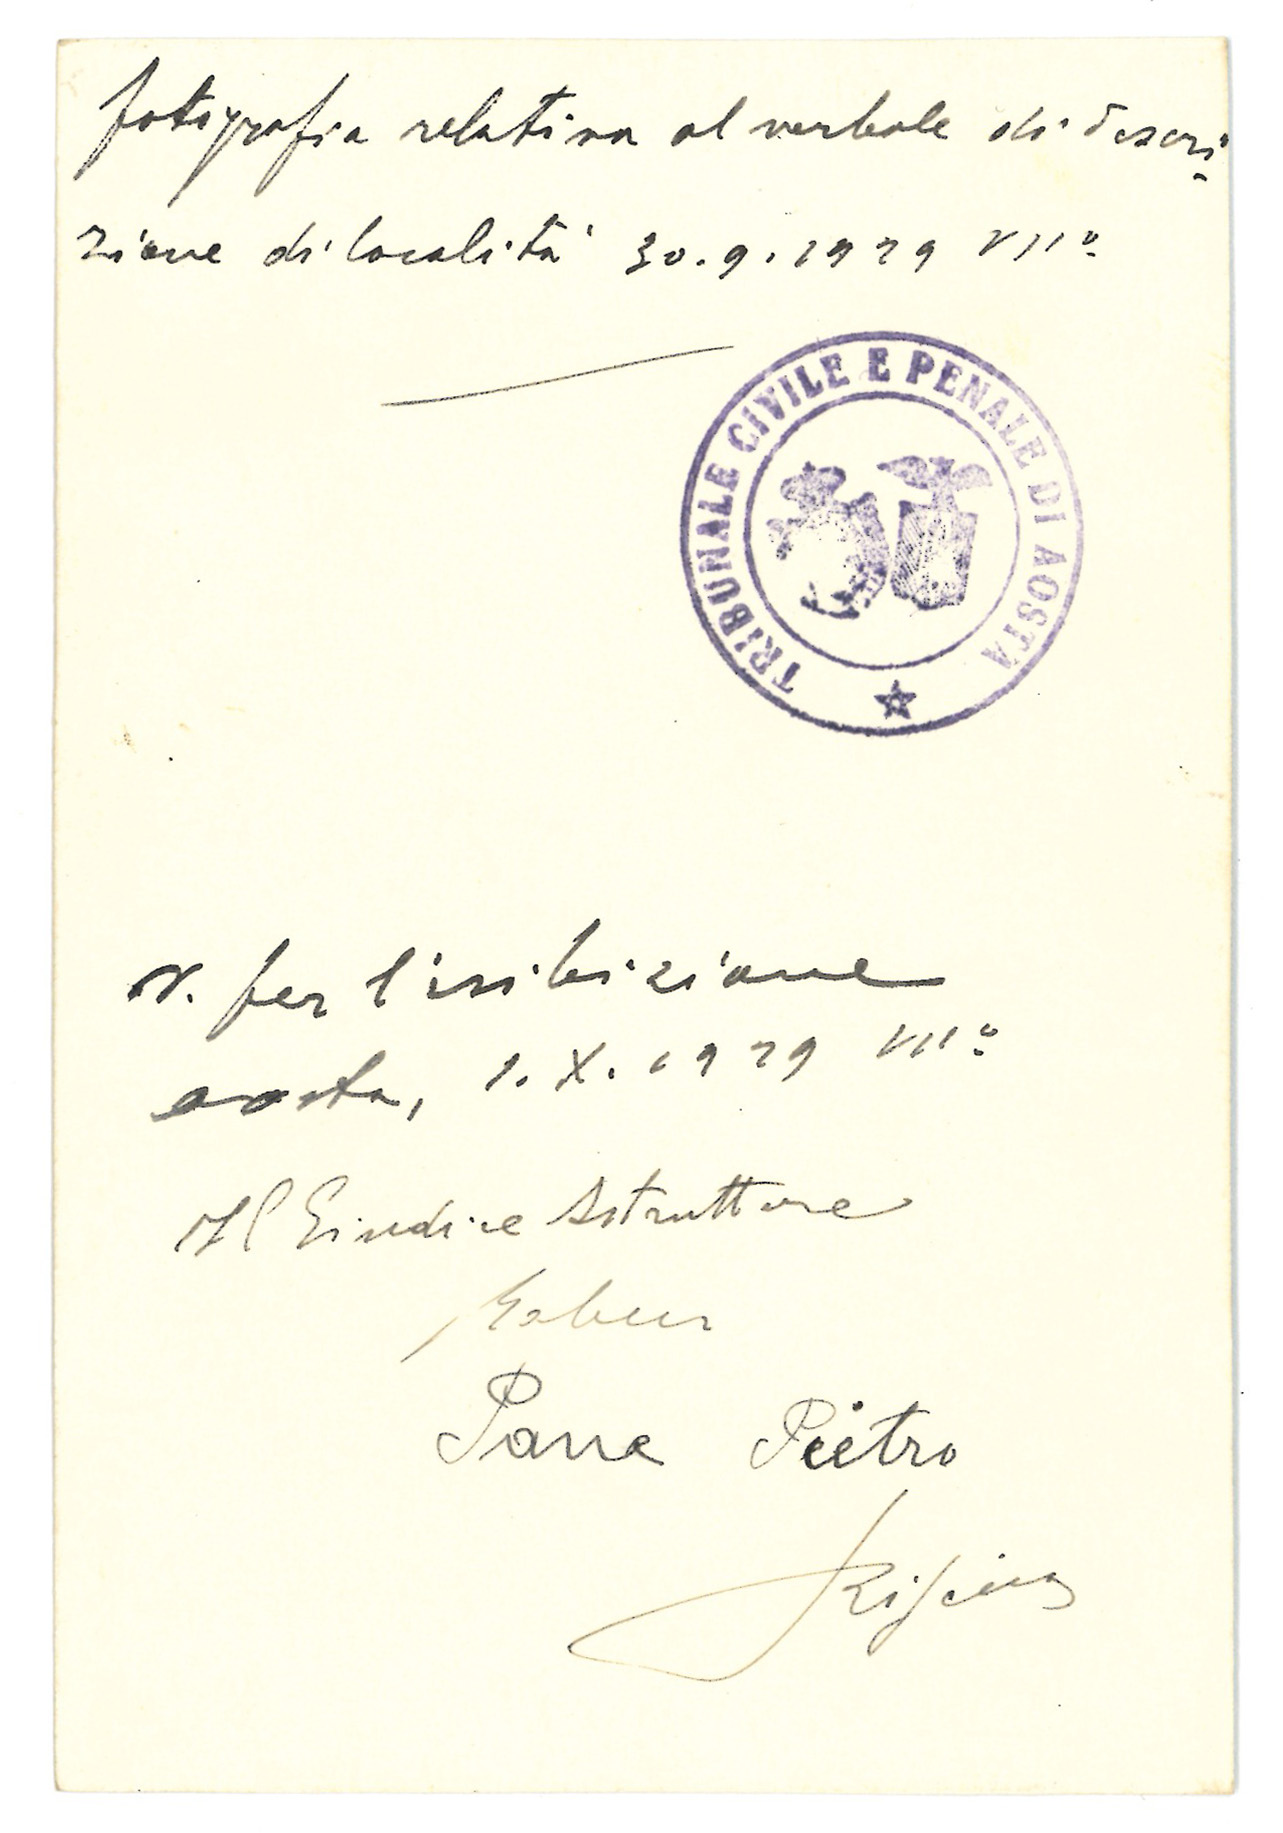 fotografia relativa al verbale di descri-
zione di località 30.9.1929 VII°
TRIBUNALE CIVILE E PENALE DI AOSTA
V. per l'esibizione
aosta, 1.X.1929 VII°
Il Giudice Istruttore
Pane Pietro